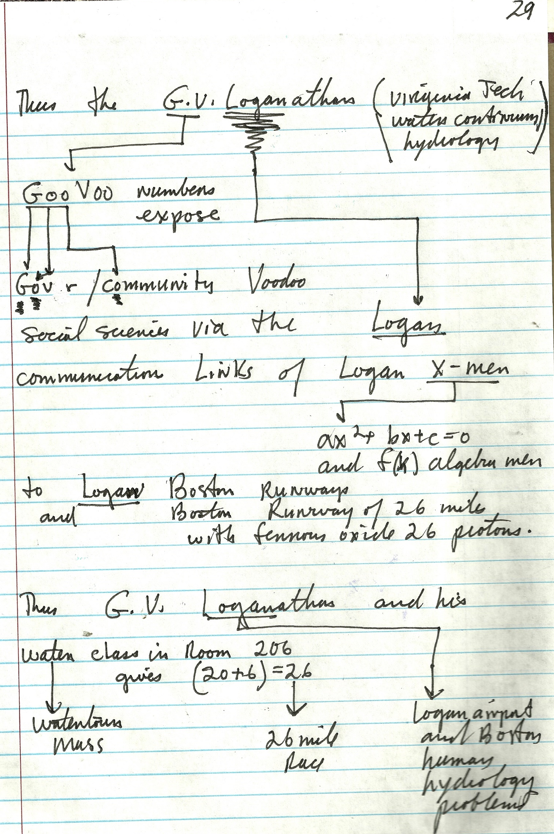 29
Thus the G.V. Loganathan (Virginia Tech
waters continuum
hydrology)
Goo Voo numbers
expose
Gov r / community Voodoo
social sciences via the Logan
communication Links of Logan X-men
ax²+ bx+c=0
and f(x) algebra men
to Logan Boston Runways
and Boston Runway of 26 mile
with ferrous oxide 26 protons.
Thus G.V. Loganathan and his
water class in Room 206
gives (20+6)=26
Watertown
Mass
26 mile
Race
Logan airport
and Boston
human
hydrology
problems